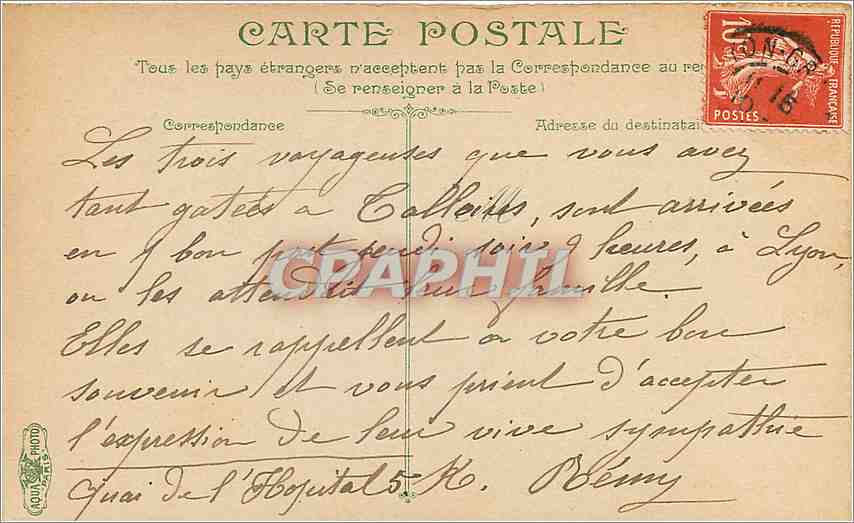 CARTE POSTALE
Tous les pays étrangers n'acceptent pas la Correspondance au re
(Se renseigner à la Poste)
Correspondance
Adresse du destinatai
RÉPUBLIQUE FRANÇAISE
10
POSTES
Les trois voyageuses que vous avez
tant gatées a sont arrivées
en bon port jeudi soir 9 heures, à Lyon,
ou les attendait leur famille.
Elles se rappellent a votre bon
souvenir et vous prient d'accepter
l'expression de leur vive sympathie
Quai de l'Hopital 5 K. Rémy
CPAPHIL
AQUA PHOTO
PARIS